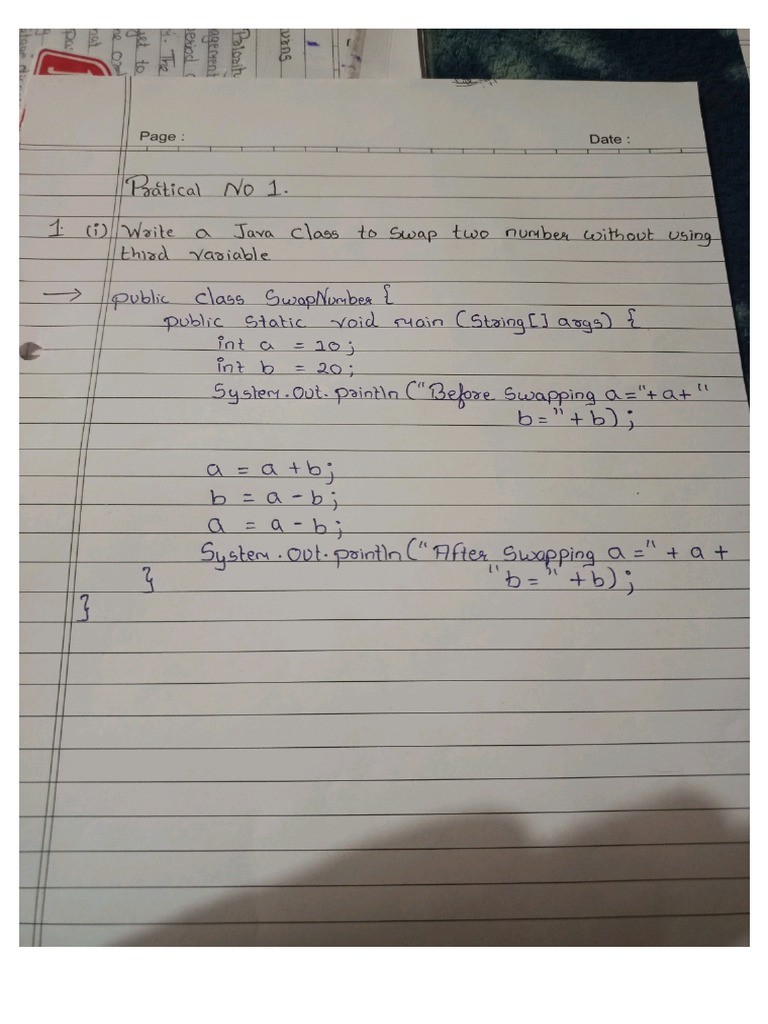 Polosity
urns
agement
period
y. The
yet to
Page :
Date :
Pratical No 1.
1. (i) Write a Java class to swap two number without using
third variable
→ public class SwapNumber {
public static void main (String[] args) {
int a = 10;
int b = 20;
System.out.println ("Before swapping a="+a+"
b=" + b);
a = a + b;
b = a - b;
a = a - b;
System.out.println ("After swapping a =" + a +
"b=" + b);
}
}